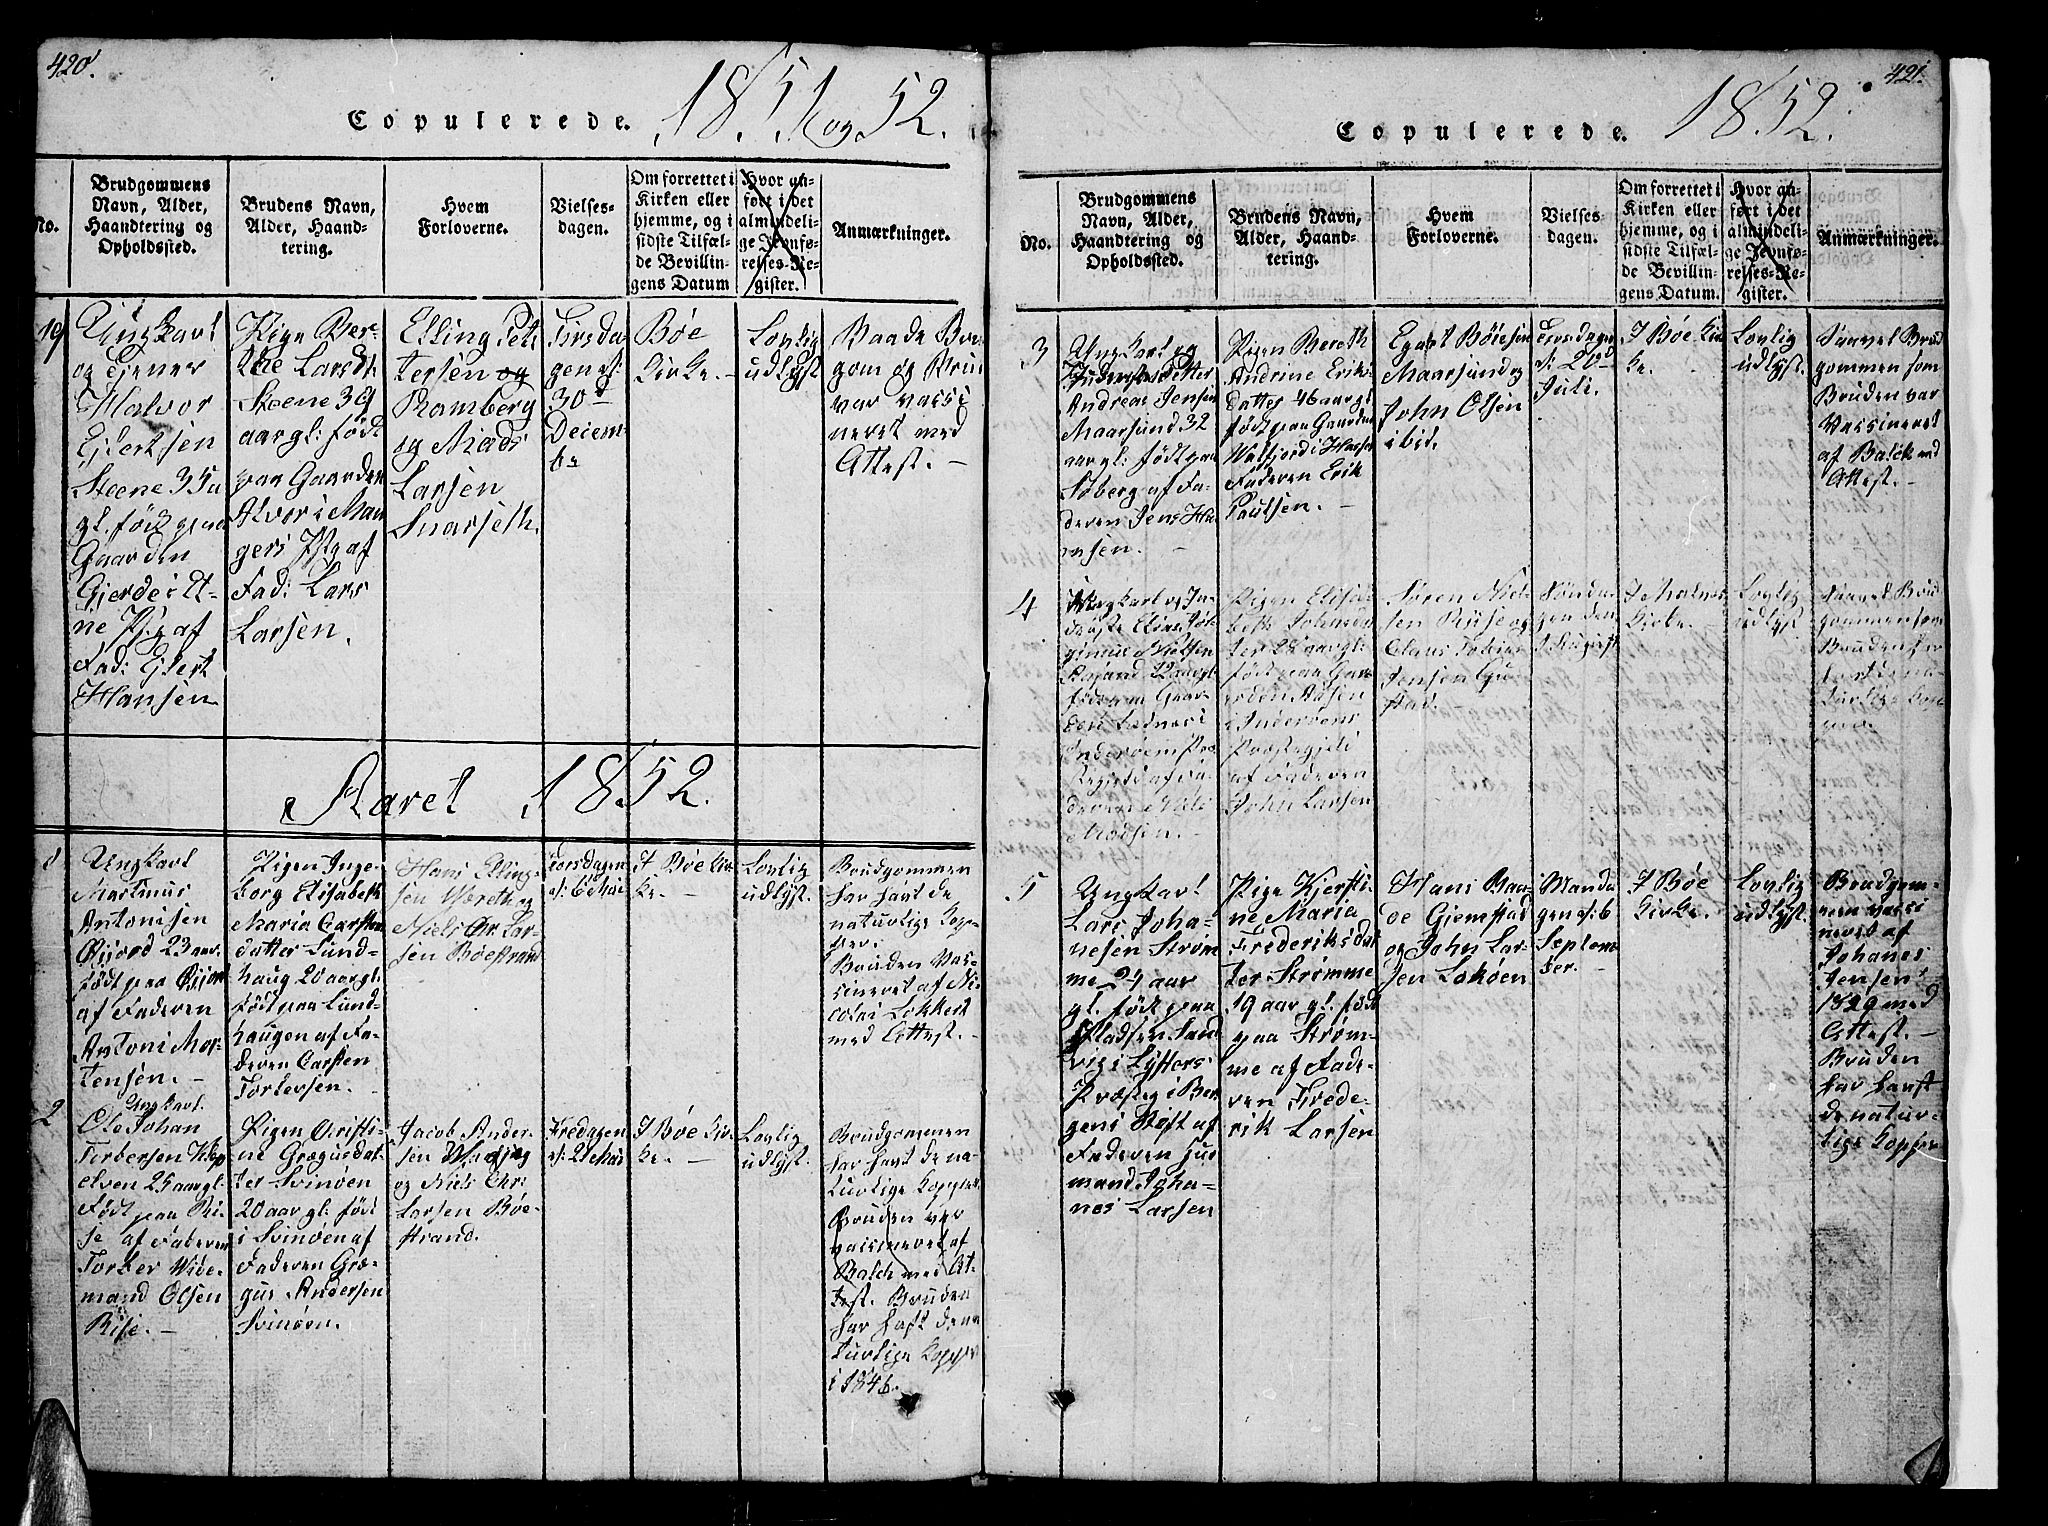 420.
Copulerede. 1851 og 52.
No.
Brudgommens
Navn, Alder,
Haandtering og
Opholdssted.
Brudens Navn,
Alder, Haand-
tering.
Hvem
Forloverne.
Vielses-
dagen.
Om forrettet i
Kirken eller
hjemme, og i
sidste Tilfæl-
de Bevillin-
gens Datum
Hvor an-
ført i det
almindeli-
ge Jevnfø-
relses-Re-
gister.
Anmærkninger.
19
Ungkarl
og Ejener
Halvor
Ejlertsen
Steene 35 a
gl. født paa
Gaarden
Gjerde i Et-
ne Pg af
Fad: Ejlert
Hansen
Pige Ber-
the Larsdt
Steene 39
aar gl: født
paa Gaarden
Alver i Man
gers Pg af
Fad: Lars
Larsen.
Elling Pet-
tersen og
Ramberg
og Mads
Larsen
Snarseth.
Tirsda
gen d:
30d
Decem
br
Bøe
Kirke. -
Lovlig
udlyst
Baade Bru
gom og Brud
var vacsi
neret med
Attest. -
Aaret 1852.
1
Ungkarl
Martinus
Antonisen
23 aar.
født paa
af Faderen
Antoni Mor-
tensen. -
Pigen Inge-
borg Elisabeth
Maria Carsten
datter Lund-
haug 20 aar gl.
født paa Lund-
haugen af Fa-
deren Carsten
Torkersen.
Hans Elling-
sen Wæreth og
Niels Chr. Lar-
sen Bøestrand
Torsdagen
d: 6 Mai
I Bøe Kir-
ke. -
Lovlig
udlyst.
Brudgommen
har havt de
naturlige Kop-
per.
Bruden Vac-
sineret af Ni-
colai Lokkert
med Attest. -
2
Ungkarl
Ole Johan
Torbersen
elven 25 aar gl.
født paa Ri-
se af Faderen
Torber Wide-
mand Olsen
Rise. -
Pigen Cristi-
ne Grægusdat-
ter Svinøen
20 aar gl: født
i Svinøen af
Faderen Græ-
gus Andersen
Svinøen.
Jacob Ander-
sen
og Niels Chr:
Larsen Bøe-
strand.
Fredagen
d: 21 Mai
I Bøe Kir-
ke. -
Lovlig
udlyst.
Brudgommen
har havt de na-
turlige Kopper
Bruden var
vacsineret af
Balch med At-
test. Bruden
har haft de na
turlige Kopper
i 1846.
421.
Copulerede. 1852.
No.
Brudgommens
Navn, Alder,
Haandtering og
Opholdssted.
Brudens Navn,
Alder, Haand-
tering.
Hvem
Forloverne.
Vielses-
dagen.
Om forrettet i
Kirken eller
hjemme, og i
sidste Tilfæl-
de Bevillin-
gens Datum.
Hvor an-
ført i det
almindeli-
ge Jevnfø-
relses-Re-
gister.
Anmærkninger.
3
Ungkarl og
Petter
Andreas Jensen
Maarsund 32
aar gl. født paa
Søberg af Fa-
deren Jens Ha
nsen. -
Pigen Bereth
Andrine Eriks
datter 46 aar gl
født paa Gaarden
i Hassel
Faderen Erik
Paulsen. -
Egart Bøiesen
Maarsund og
John Olsen
ibid.
Torsdagen
d: 20d
Juli.
I Bøe Kir
ke.
Lovlig
udlyst.
Saavel Brud
gommen som
Bruden var
Vacsineret
af Balck med
Attest. -
4
Ungkarl og In-
derøste Elias Jør-
ginus Nielsen
22 aar gl
født paa Gaar
den
Inderøens Præ
stegjeld af Fa-
deren Niels
Pigen Elisa
beth Johnsdat
ter 28 aar gl:
født paa Gaa
rden Aasen
i Inderøens
Præstegjeld
af Faderen
John Larsen
Søren Niel-
sen Risse og
Claus Tobias
Jensen Gu-
stad.
Sønda-
gen den
1 August
I Malnes
Kirke.
Lovlig
udlyst.
Saavel Brud
gommen som
Bruden har
havt de na-
turlige Kop
per.
5
Ungkarl
Lars Joha-
nesen Strøm
me 24 aar
gl. født paa
Pladsen Sand
vig i Lysters
Præsteg i Ber
gens Stift af
Faderen Hus
mand Joha-
nes Larsen
Pige Kjersti-
ne Maria
Frederiksdat
ter Strømme
19 aar gl. født
paa Strøm-
me af Fade-
ren Frede-
rik Larsen
Hans Baa-
de Gjemstad
og John Lar-
sen Lokøen
Manda
gen d: 6
Septem-
ber.
I Bøe
Kirke.
Lovlig
udlyst.
Brudgom-
men vacsi
neret af
Johanes
Jensen
1829 med
Attest. -
Bruden
har havt
de natur-
lige Kopper